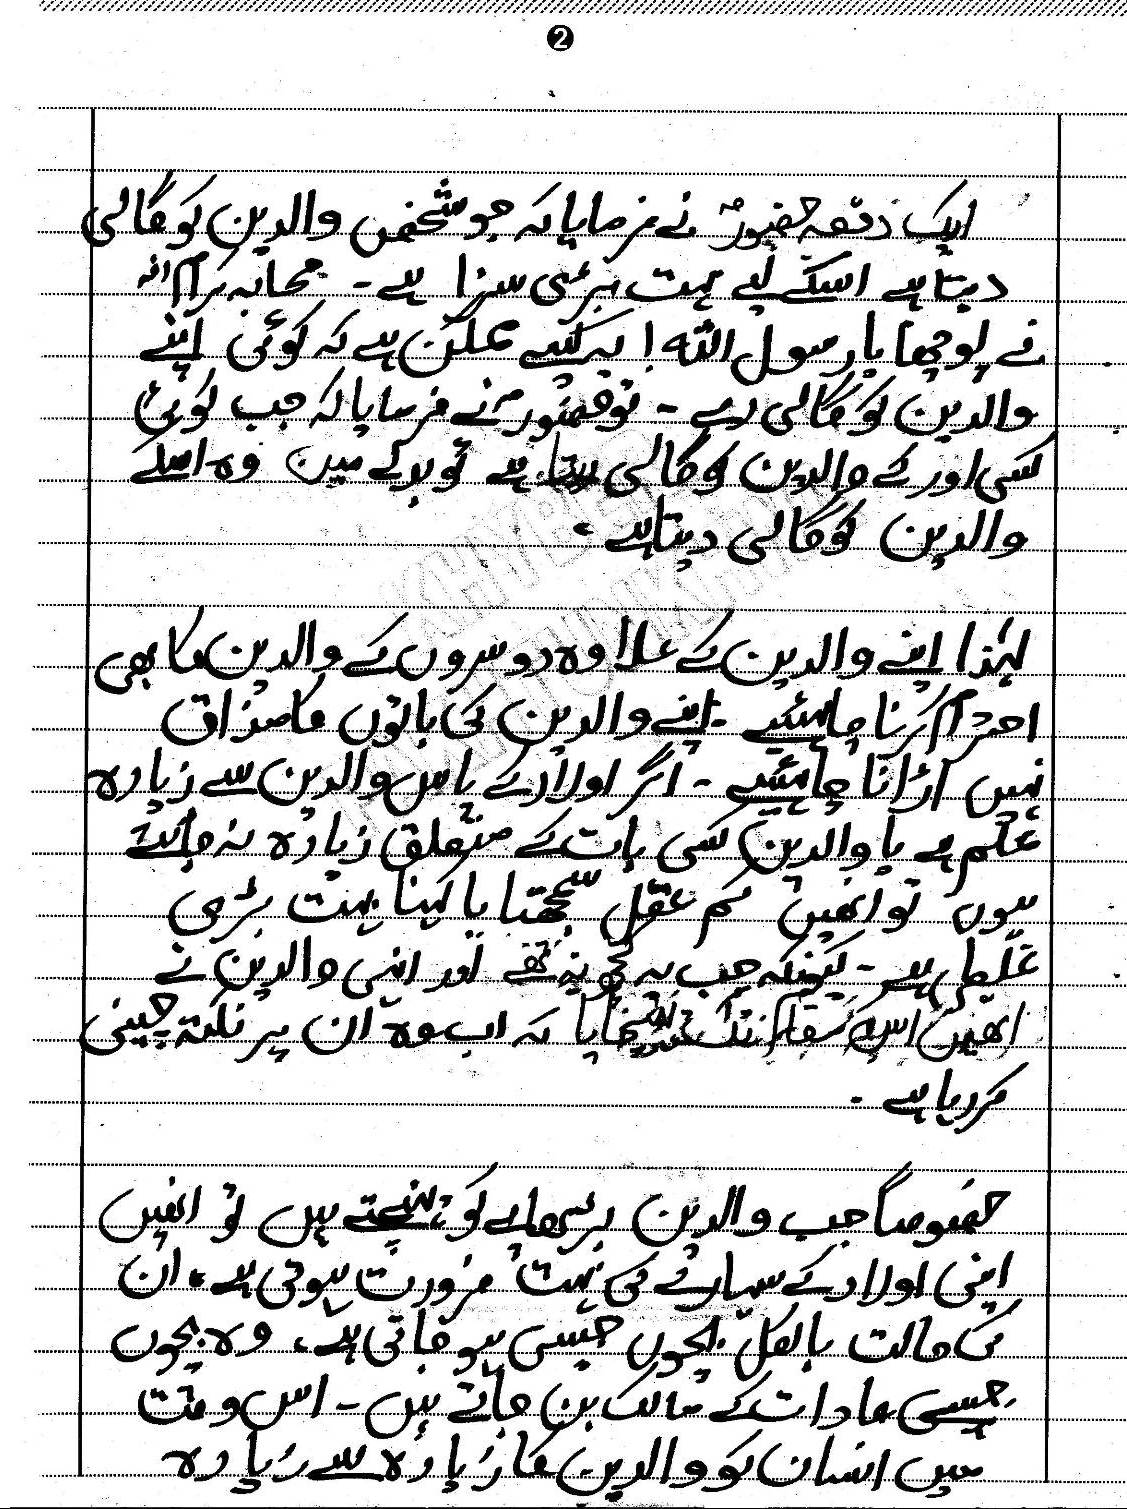 2
ایک دفعہ حضورؐ نے فرمایا کہ جو شخص والدین کو گالی
دیتا ہے اسکے لیے بہت بڑی سزا ہے - صحابہ کرامؓ
نے پوچھا یا رسول اللہ! یہ کیسے ممکن ہے کہ کوئی اپنے
والدین کو گالی دے - تو حضورؐ نے فرمایا کہ جب کوئی
کسی اور کے والدین کو گالی دیتا ہے تو بدلے میں وہ اسکے
والدین کو گالی دیتا ہے -
لہٰذا اپنے والدین کے علاوہ دوسروں کے والدین کا بھی
احترام کرنا چاہئیے - اپنے والدین کی باتوں کا مذاق
نہیں اڑانا چاہئیے - اگر اولاد کے پاس والدین سے زیادہ
علم ہے یا والدین کسی بات کے متعلق زیادہ نہ جانتے
ہوں تو انھیں کم عقل سمجھنا یا کہنا بہت بڑی
غلطی ہے - کیونکہ جب یہ کچھ نہ تھے اور اپنی والدین نے
انھیں اس مقام تک پہنچایا کہ اب وہ ان پر نکتہ چینی
کر رہا ہے -
خصوصاً جب والدین بڑھاپے کو پہنچتے ہیں تو انھیں
اپنی اولاد کے سہارے کی بہت ضرورت ہوتی ہے، ان
کی حالت بالکل بچوں جیسی ہو جاتی ہے، وہ بچوں
جیسی عادات کے مالک بن جاتے ہیں - اس وقت
میں انسان کو والدین کا زیادہ سے زیادہ